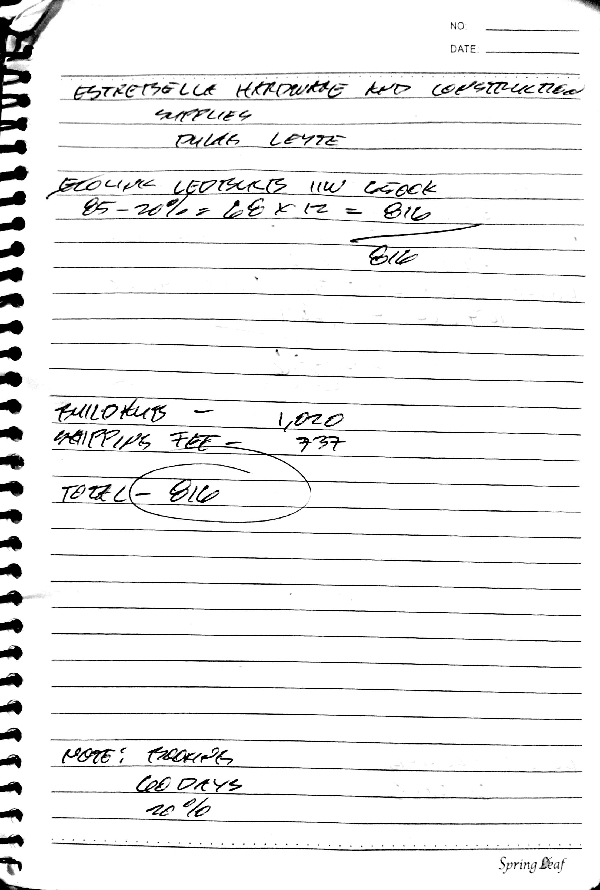 NO:
DATE
ESTRETSELLA HARDWARE AND CONSTRUCTION
SUPPLIES
DULAG LEYTE
ECOLINK LEDTSULTS 11W 6500K
85 - 20% = 68 X 12 = 816
816
BUILDHUB - 1,020
SHIPPING FEE - 337
TOTAL - 816
NOTE: BOOKING
60 DAYS
20%
Spring Leaf